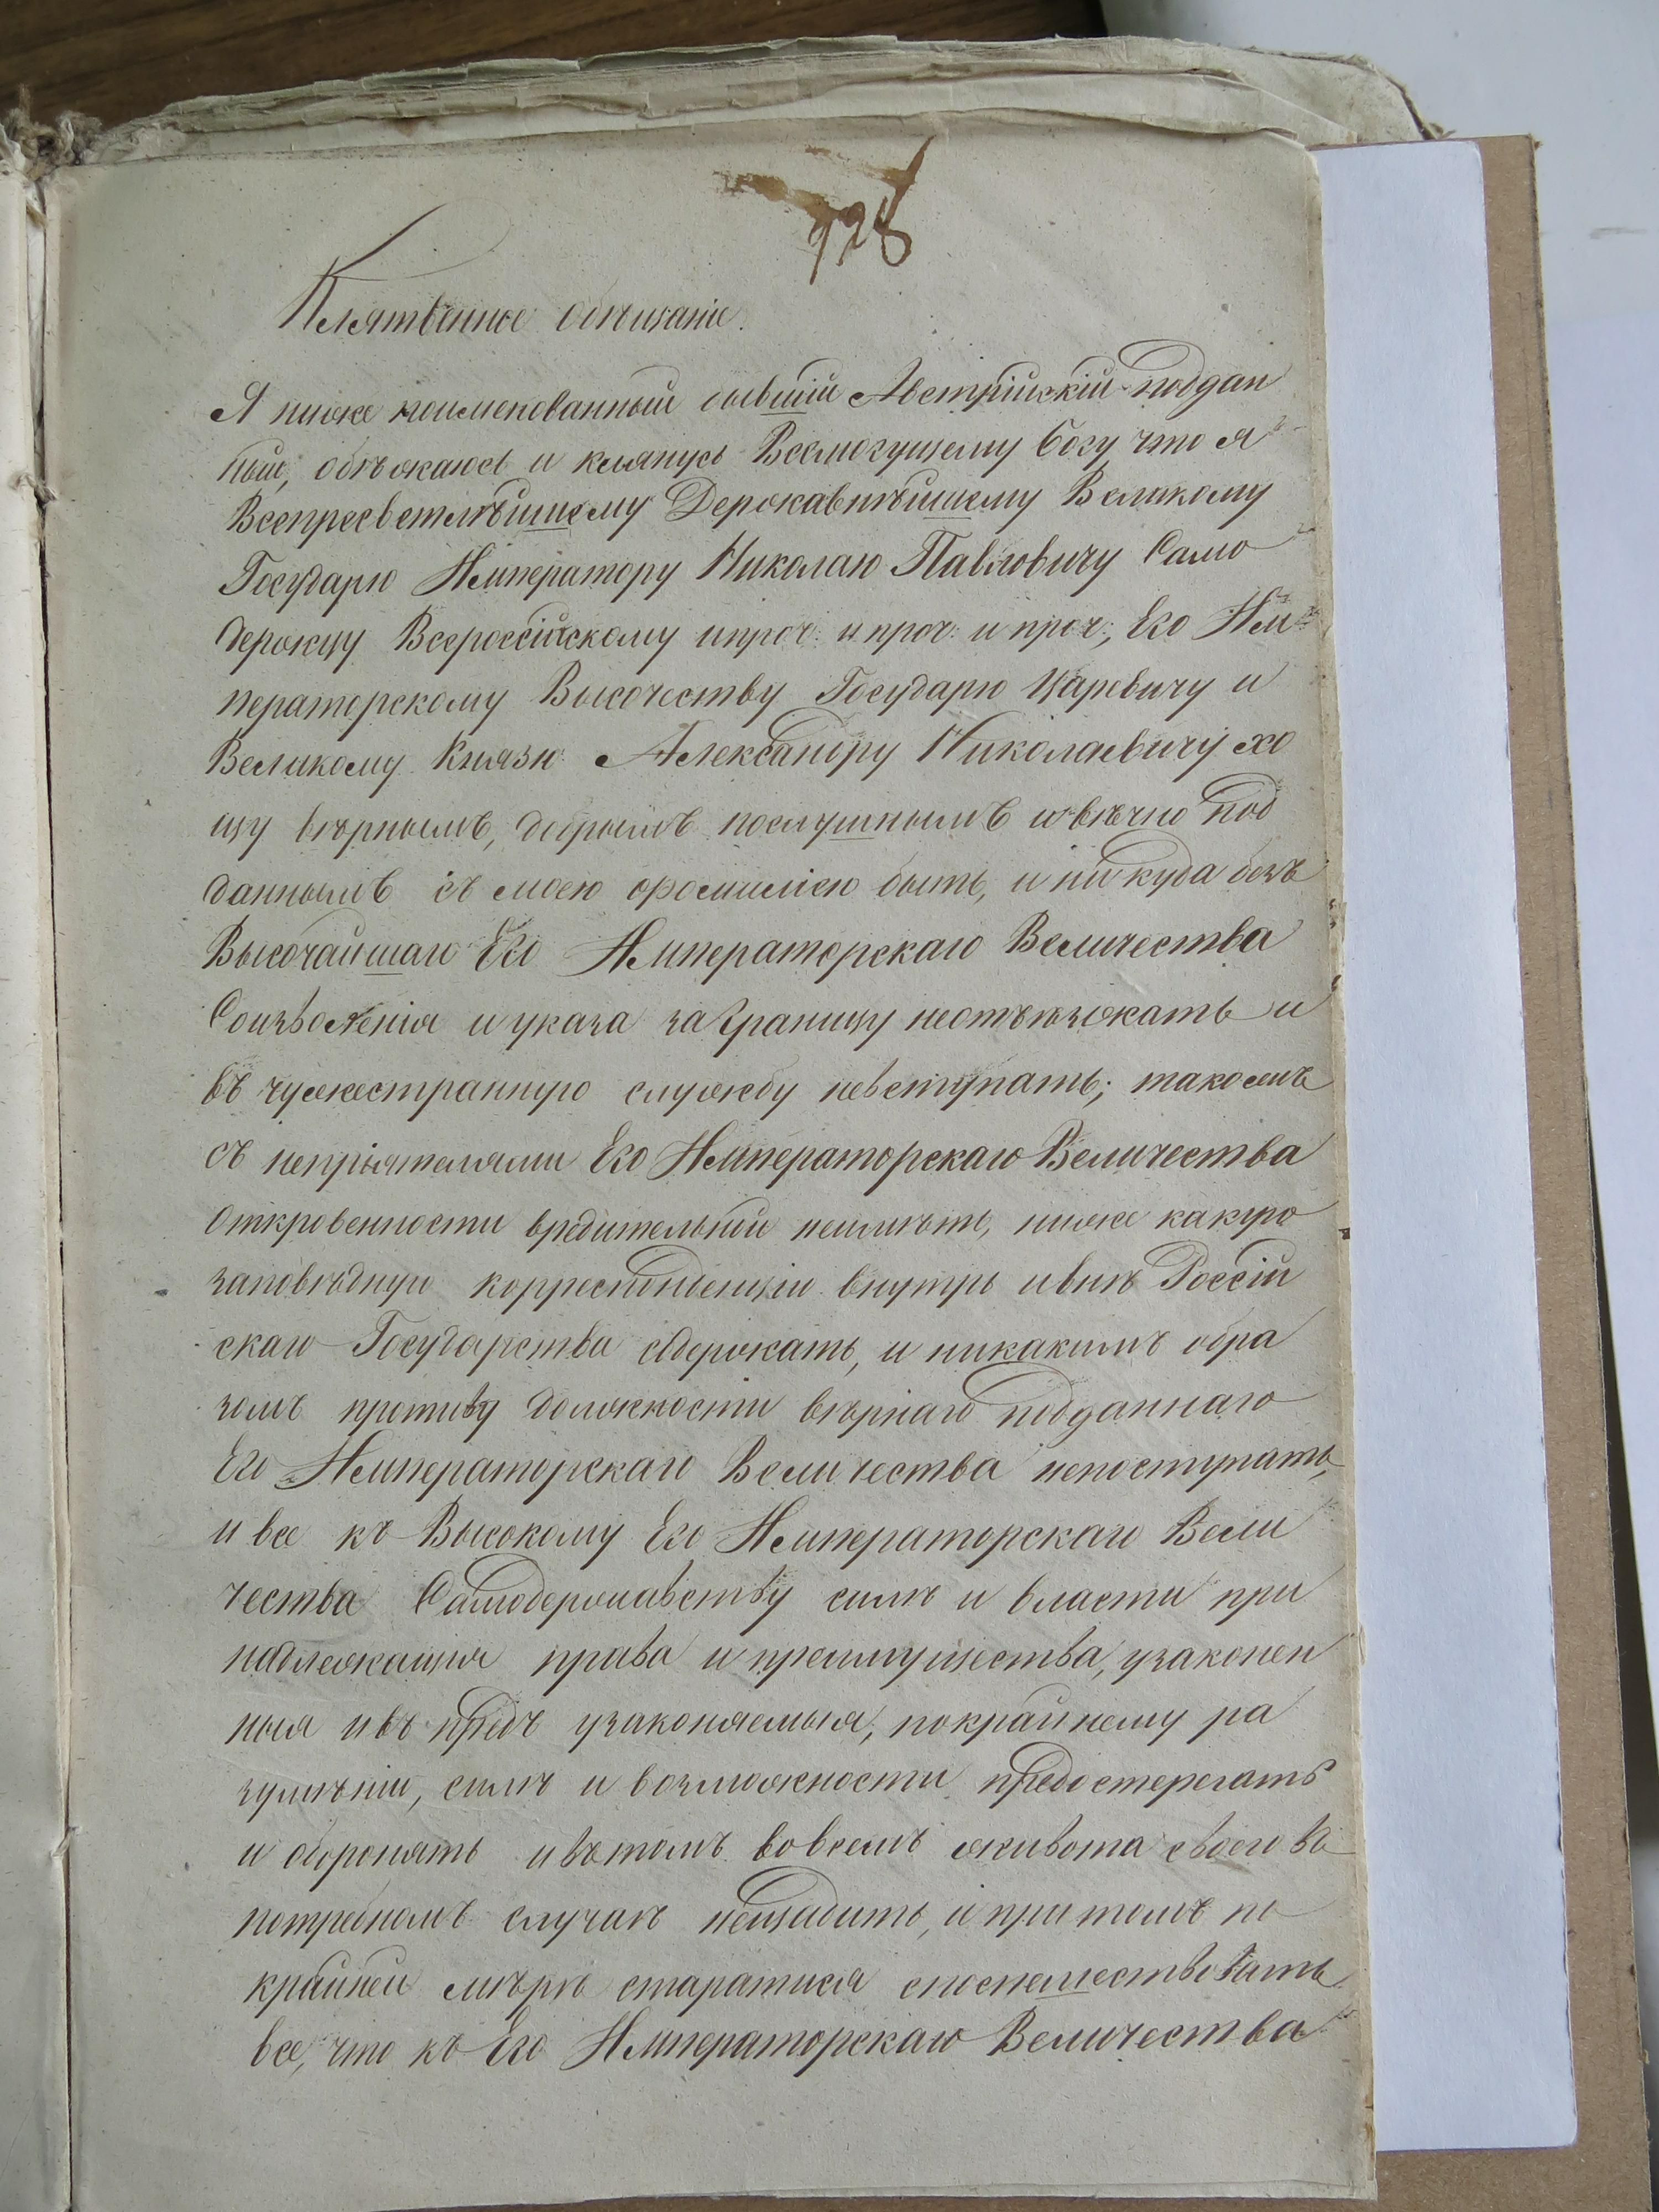 728
Клятвенное обѣщаніе.
Я ниже поименованный бывшій Австрійскій поддан
ный, обѣжаюсь и клянусь Всемогущему Богу что я
Всепресветлѣйшему Державнѣйшему Великому
Государю Императору Николаю Павловичу Само
держцу Всероссійскому ипроч: и проч: и проч:, Его Им=
ператорскому Высочеству Государю Царевичу и
Великому Князю Александру Николаевичу хо
щу вѣрнымъ, добрымъ послушнымъ и вѣчно под
даннымъ съ моею фамиліею быть, и никуда безъ
Высочайшаго Его Императорскаго Величества
Соизволенія и указа заграницу неотъѣзжать и
въ чужестранную службу невступать; такожъ
съ непріятелями Его Императорскаго Величества
Откровенности вредительной неимѣть, ниже какую
заповѣдную корреспонденцію внутрь ивнѣ Россій
скаго Государства содержать, и никакимъ обра
зомъ противу должности вѣрнаго подданнаго
Его Императорскаго Величества непоступать,
и все къ Высокому Его Императорскаго Вели
чества Самодержавству силѣ и власти при
надлежащія права и преимущества, узаконен
ныя ивъ предъ узаконяемыя, покрайнему ра
зумѣнію, силѣ и возможности предостерегать
и оборонять ивътомъ вовсемъ живота своего въ
потребномъ случаѣ нещадить, и притомъ по
крайней мѣрѣ старатися споспешествовать
все, что къ Его Императорскаго Величества